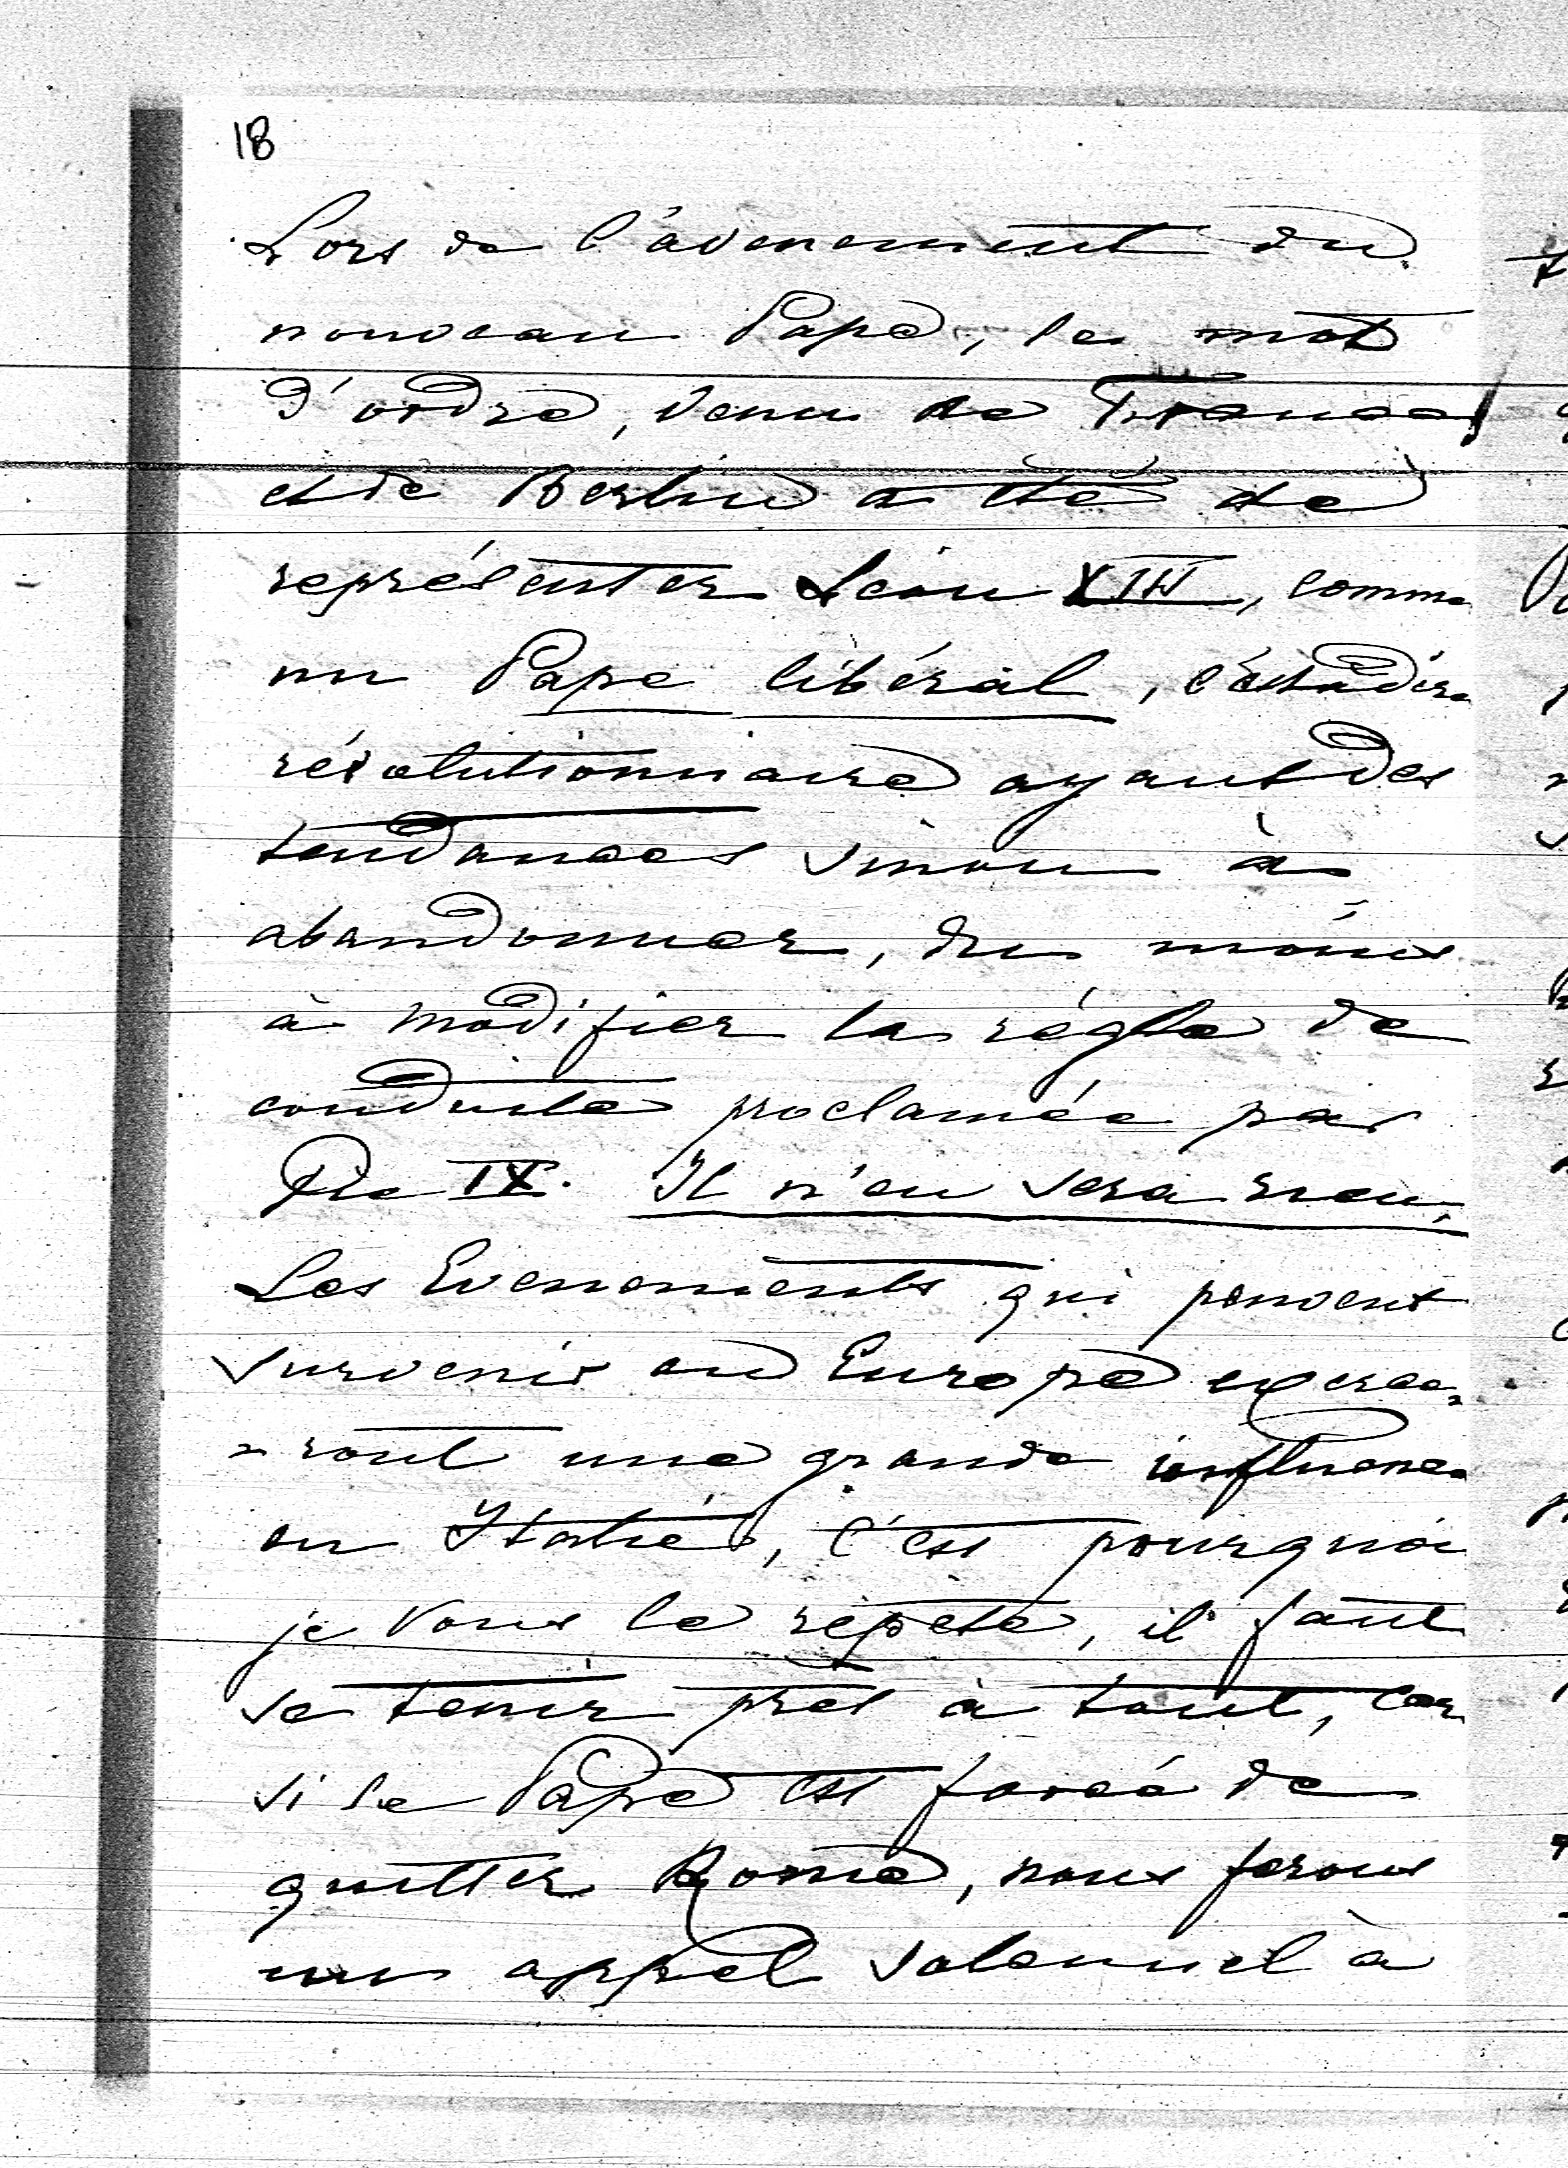 18
Lors de l'avenement du
nouveau Pape, le mot
d'ordre, venu de France
et de Berlin a été de
représenter Léon XIII, comme
un Pape libéral, c'estàdire
révolutionnaire ayant des
tendances sinon à
abandonner, du moins
à modifier la régle de
conduite proclamée par
Pie IX. Il n'en sera rien.
Les Evenements qui peuvent
survenir en Europe exerce-
-ront une grande influence
en Italie, c'est pourquoi
je vous le répete, il faut
se tenir prêt à tout, car
si le Pape est forcé de
quitter Rome, nous ferons
un appel solennel à